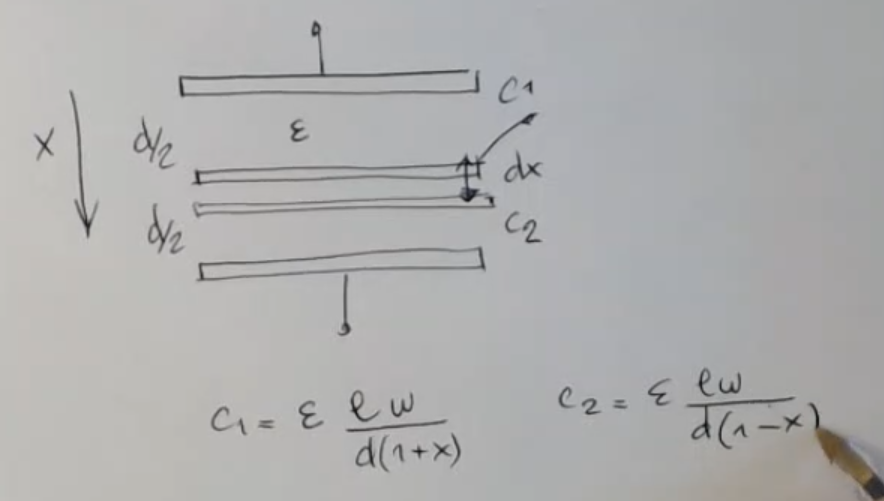 C1
x
d/2
ε
dx
d/2
C2
C1 = ε lw / d(1+x)
C2 = ε lw / d(1-x)